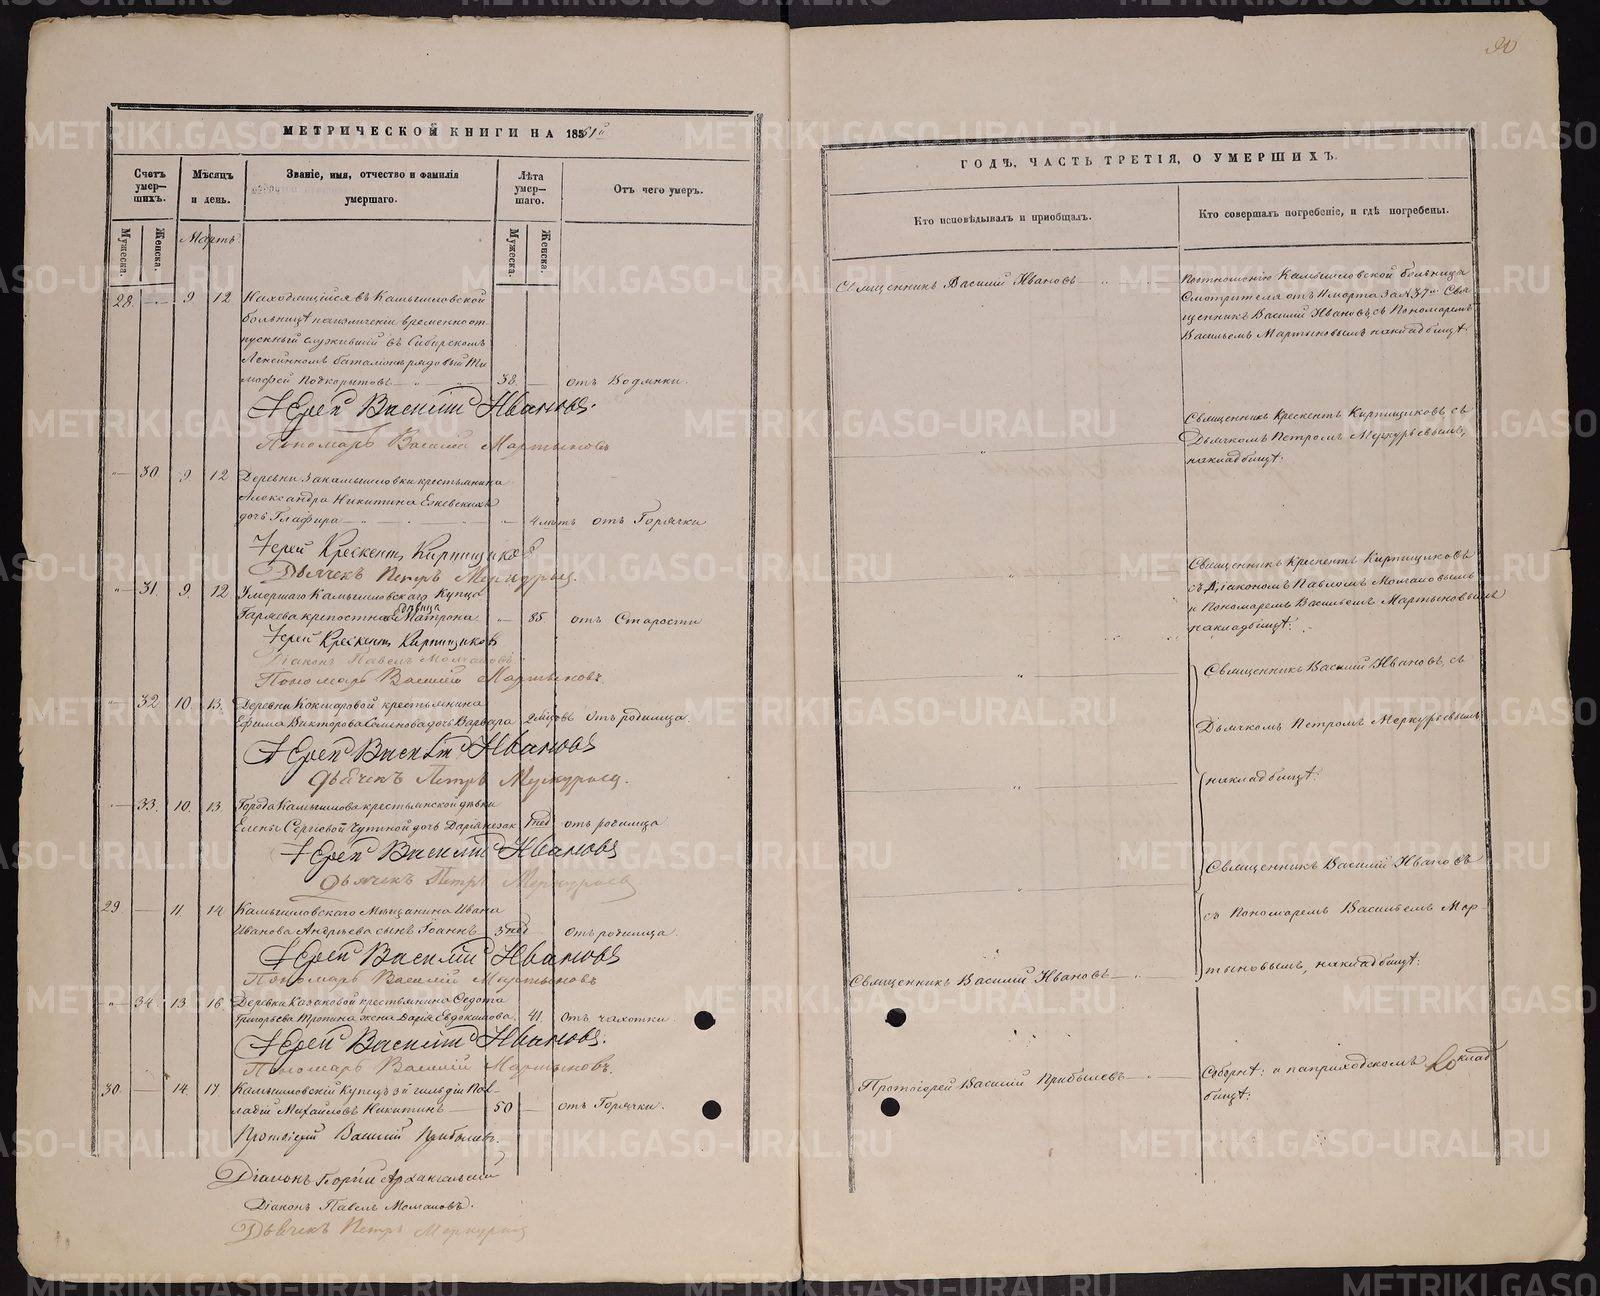 МЕТРИЧЕСКОЙ КНИГИ НА 1861й
Счетъ умер-шихъ.
Мѣсяцъ и день.
Званіе, имя, отчество и фамилія умершаго.
Лѣта умер-шаго.
Отъ чего умеръ.
Мужеска.
Женска.
Мартъ.
Мужеска.
Женска.
28. 9 12 Находящійся въ Камышловской
больницѣ на излеченіи временноот-
пускный служившій въ Сибирскомъ
Линейномъ баталіонѣ рядовый Ти-
мофей Подкорытовъ 38. — отъ Водянки.
Іерей Василій Ивановъ.
Пономарь Василій Мартыновъ
30 9 12 Деревни Закамышловки крестьянина
Александра Никитина Ежевскихъ
дочь Глафира 4 лѣтъ отъ Горячки
Іерей Крескентъ Кирпищиковъ
Дьячекъ Петръ Меркурьев.
31. 9. 12. Умершаго Камышловскаго Купца
Гаряева крепостная вдовица Матрона 85. отъ Старости
Іерей Крескентъ Кирпищиковъ
Діаконъ Павелъ Молчановъ.
Пономарь Василій Мартыновъ.
32 10. 13. Деревни Кокшаровой крестьянина
Ефима Викторова Семенова дочь Варвара отъ родимца.
Іерей Василій Ивановъ
Дьячекъ Петръ Меркурьев.
33. 10. 13 Города Камышлова крестьянской дѣвки
Елены Сергѣевой Чупиной дочь Дарія незак 1 нед отъ родимца
Іерей Василій Ивановъ
Дьячекъ Петръ Меркурьев
29 — 11 14 Камышловскаго Мѣщанина Ивана
Иванова Андрѣева сынъ Іоаннъ 3 нед отъ родимца.
Іерей Василій Ивановъ
Пономарь Василій Мартыновъ
34. 13 16 Деревни Казаковой крестьянина Федота
Григорьева Тропина жена Дарія Евдокимова. 41. Отъ чахотки.
Іерей Василій Ивановъ.
Пономарь Василій Мартыновъ.
30. — 14. 17 Камышловскій Купецъ 3й гильдіи
Михайловъ Никитинъ 50 — отъ Горячки.
Протоіерей Василій Прибылевъ.
Діаконъ Георгій Архангельскій
Діаконъ Павелъ Молчановъ.
Дьячекъ Петръ Меркурьев
ГОДЪ, ЧАСТЬ ТРЕТІЯ, О УМЕРШИХЪ.
Кто исповѣдывалъ и пріобщалъ.
Кто совершалъ погребеніе, и гдѣ погребены.
Священникъ Василій Ивановъ
По отношенію Камышловской больницы
Смотрителя отъ 11 марта за № 37м Свя-
щенникъ Василій Ивановъ, съ Пономаремъ
Васильемъ Мартыновымъ на кладбищѣ.
Священникъ Крескентъ Кирпищиковъ съ
Дьячкомъ Петромъ Меркурьевымъ,
на кладбищѣ.
Священникъ Крескентъ Кирпищиковъ
съ Діакономъ Павломъ Молчановымъ
и Пономаремъ Васильемъ Мартыновымъ
на кладбищѣ.
Священникъ Василій Ивановъ, съ
Дьячкомъ Петромъ Меркурьевымъ
на кладбищѣ.
Священникъ Василій Ивановъ
съ Пономаремъ Васильемъ Мар-
тыновымъ, на кладбищѣ.
Священникъ Василій Ивановъ
Протоіерей Василій Прибылевъ
Соборнѣ: и на приходскомъ клад
бищѣ:
METRIKI.GASO-URAL.RU